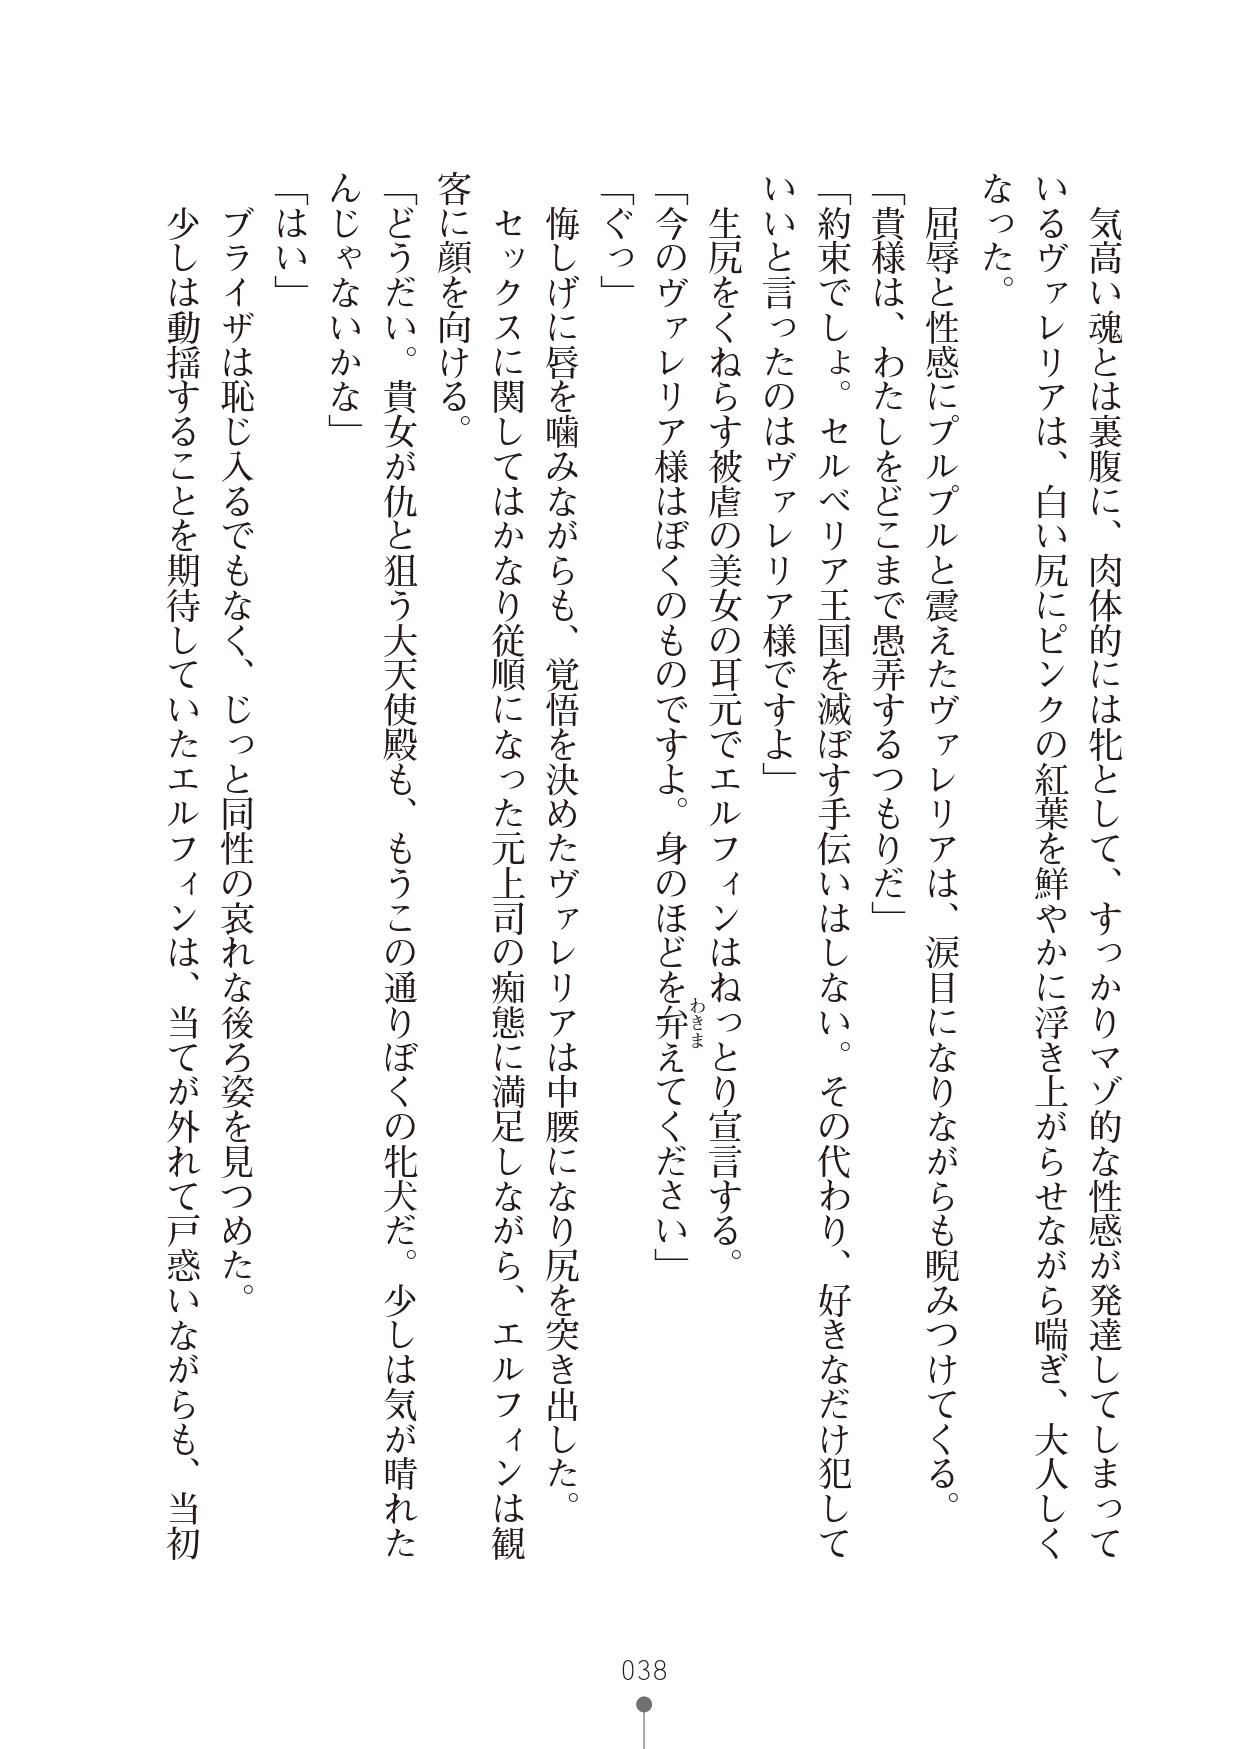 気高い魂とは裏腹に、肉体的には牝として、すっかりマゾ的な性感が発達してしまって
いるヴァレリアは、白い尻にピンクの紅葉を鮮やかに浮き上がらせながら喘ぎ、大人しく
なった。
屈辱と性感にプルプルと震えたヴァレリアは、涙目になりながらも睨みつけてくる。
「貴様は、わたしをどこまで愚弄するつもりだ」
「約束でしょ。セルベリア王国を滅ぼす手伝いはしない。その代わり、好きなだけ犯して
いいと言ったのはヴァレリア様ですよ」
生尻をくねらす被虐の美女の耳元でエルフィンはねっとり宣言する。
「今のヴァレリア様はぼくのものですよ。身のほどを弁えてください」
わきま
「ぐっ」
悔しげに唇を噛みながらも、覚悟を決めたヴァレリアは中腰になり尻を突き出した。
セックスに関してはかなり従順になった元上司の痴態に満足しながら、エルフィンは観
客に顔を向ける。
「どうだい。貴女が仇と狙う大天使殿も、もうこの通りぼくの牝犬だ。少しは気が晴れた
んじゃないかな」
「はい」
ブライザは恥じ入るでもなく、じっと同性の哀れな後ろ姿を見つめた。
少しは動揺することを期待していたエルフィンは、当てが外れて戸惑いながらも、当初
038